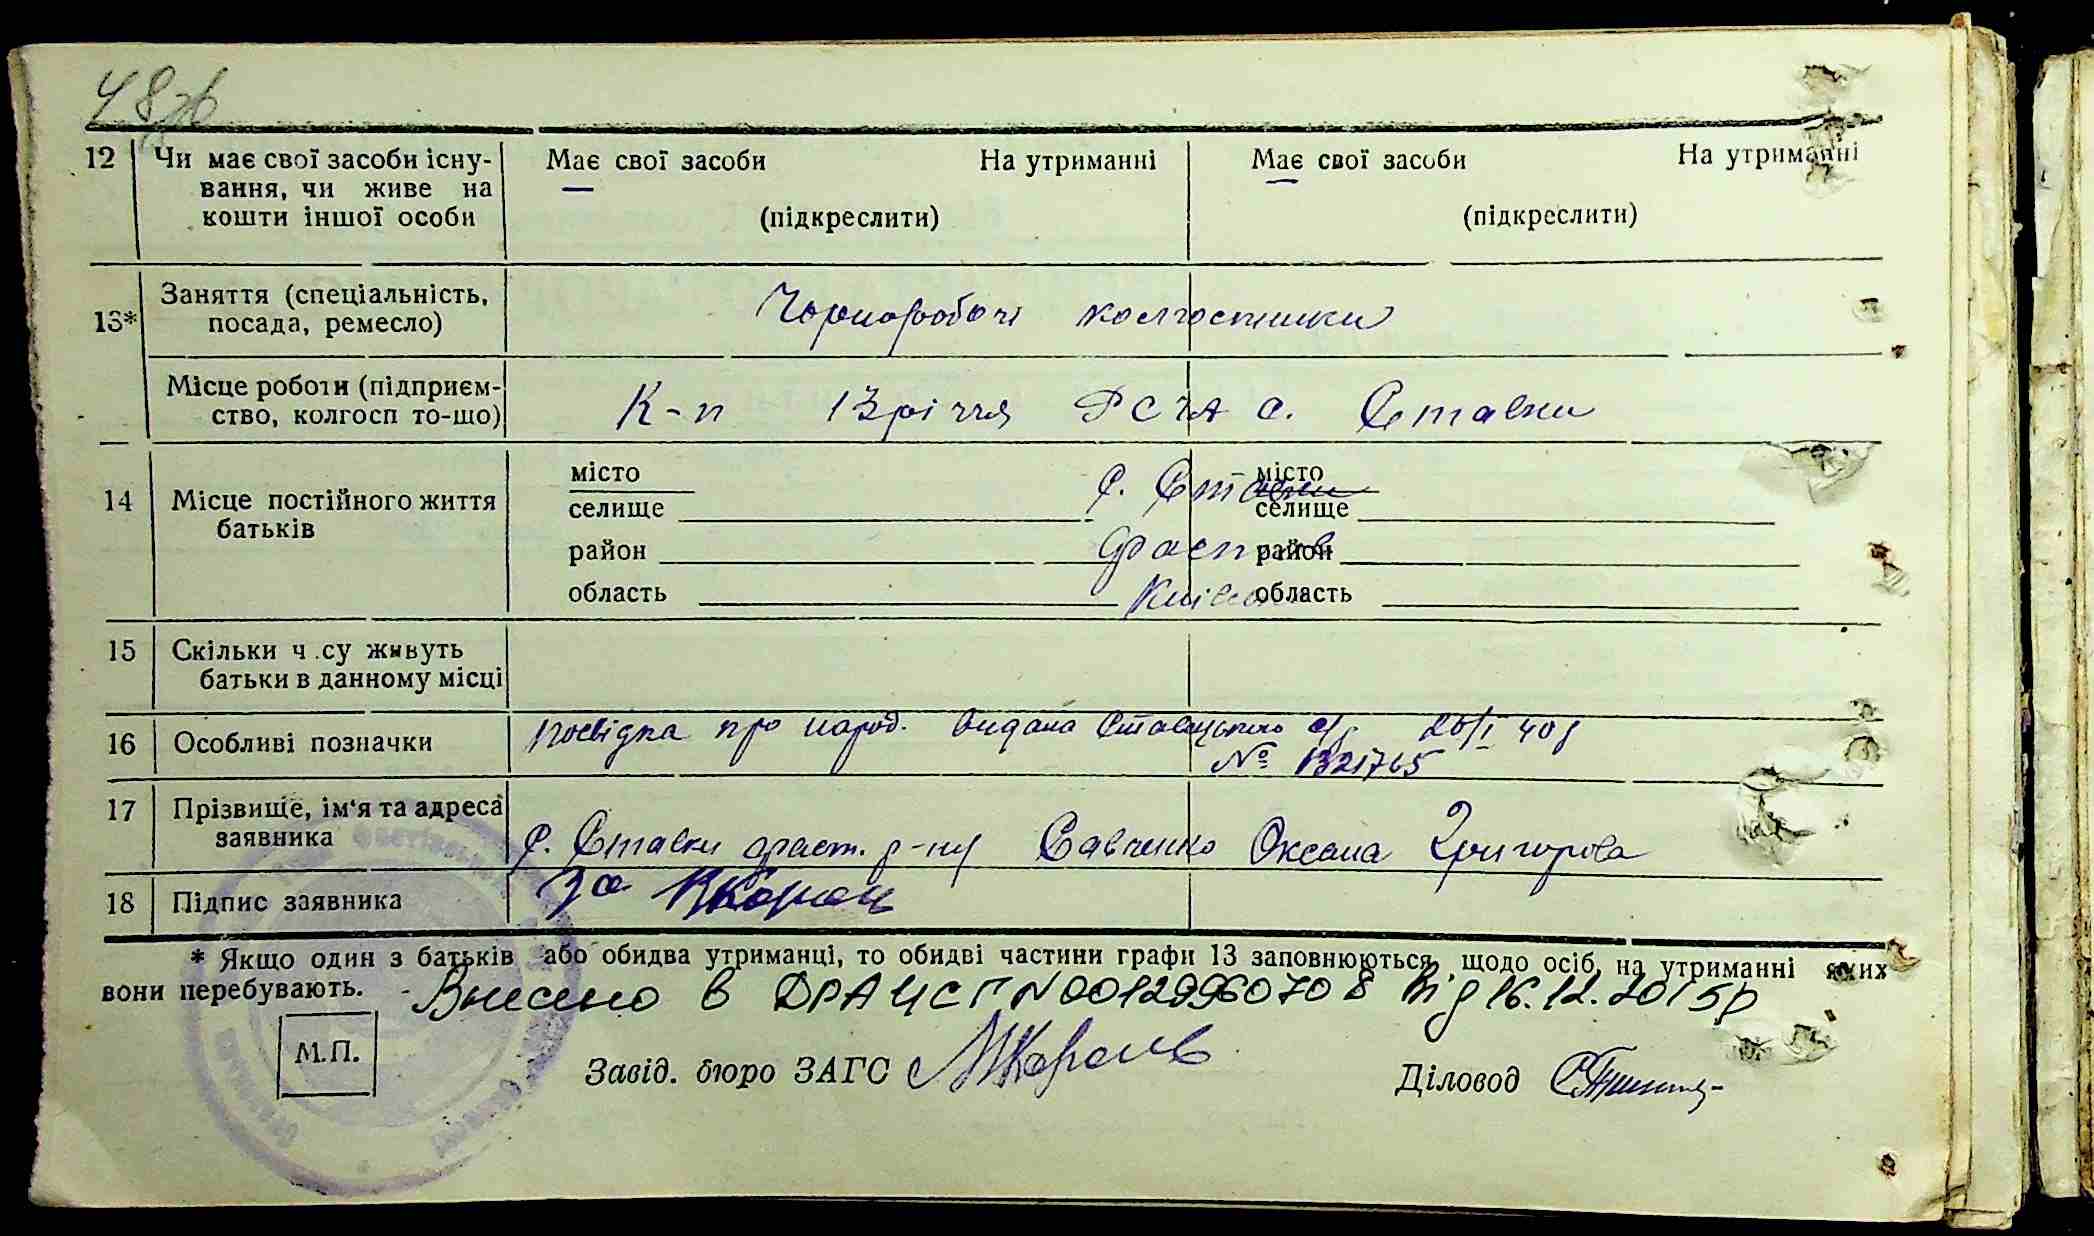 48
12 Чи має свої засоби існу- Має свої засоби На утриманні Має свої засоби На утриманні
вання, чи живе на
кошти іншої особи (підкреслити) (підкреслити)
13* Заняття (спеціальність, Чорноробочі колгоспники
посада, ремесло)
Місце роботи (підприєм- К-п 13 річчя РСЧА с. Ставки
ство, колгосп то-що)
14 Місце постійного життя місто с. Ставки місто
батьків селище селище
район Фастів район
область Київськ область
15 Скільки ч су живуть
батьки в данному місці
16 Особливі позначки Посвідка про народ. видана Ставцькою с/р 26/I 40 р
№ 1321765
17 Прізвище, ім'я та адреса
заявника с. Ставки Фаст. р-ну Савченко Оксана Григорова
18 Підпис заявника за
* Якщо один з батьків або обидва утриманці, то обидві частини графи 13 заповнюються, щодо осіб, на утриманні яких
вони перебувають. - Внесено в ДРАЦСГ N00129960708 від 16.12.2015р
М.П. Завід. бюро ЗАГС Діловод